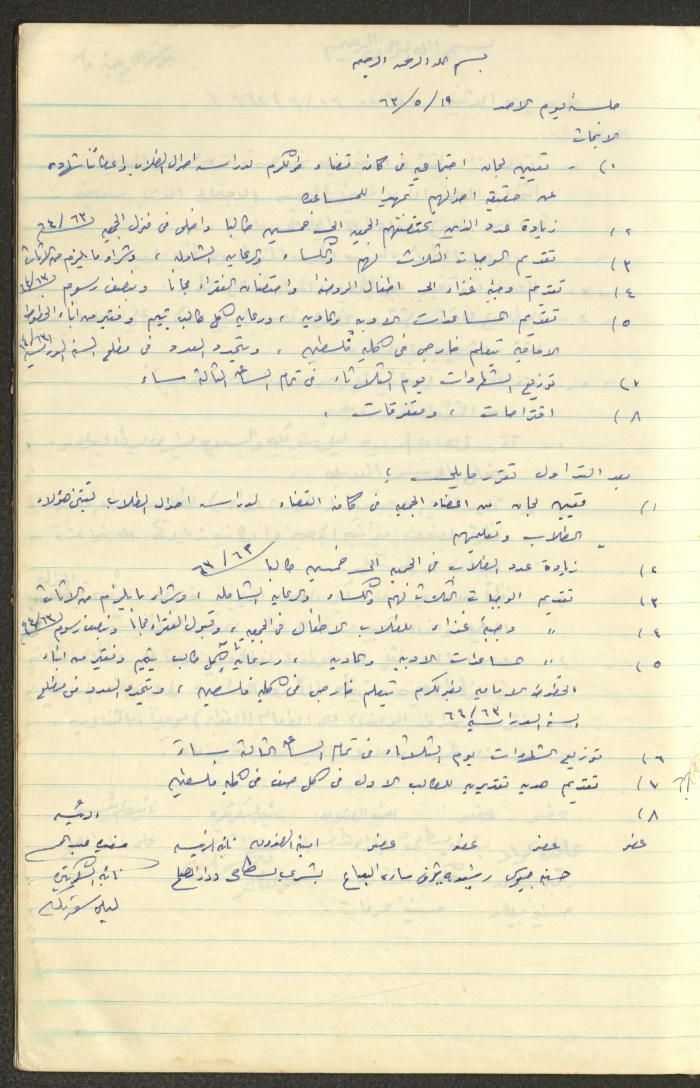 بسم الله الرحمن الرحيم
جلسة يوم الاحد ١٩/٥/٦٣
الابحاث
١) - تعيين لجان اجتماعيه في كافة قضاء طولكرم لدراسة احوال الطلاب واعطائنا شهاده
عن حقيقة احوالهم تمهيدا للمساعده
٢) زيادة عدد الذين تحتضنهم الجمعيه الى خمسين طالبا داخلي في منزل الجمعيه ٦٣/٦٤
٣) تقديم الوجبات الثلاث لهم والكساء والرعايه الشامله ، وشراء ما يلزم من الاثاث
٤) تقديم وجبة غذاء الى اطفال الروضة واحتضان الفقراء مجانا ونصف رسوم ٦٣/٦٤
٥) تقديم المساعدات الادبيه والماديه ، ورعاية كل طالب يتيم وفقير من ابناء الخطوط
الاماميه تعليم خارجي في كلية فلسطين ، ويتحدد العدد في مطلع السنة الدراسية ٦٣/٦٤
٧) توزيع الشهادات يوم الثلاثاء في تمام الساعة الثالثة مساء
٨) اقتراحات ، ومتفرقات .
بعد التداول تقرر ما يلي :
١) تعيين لجان من اعضاء الجمعيه في كافة القضاء لدراسة احوال الطلاب لتبني هؤلاء
الطلاب وتعليمهم
٢) زيادة عدد الطلاب في الجمعيه الى خمسين طالبا ٦٣/٦٤
٣) تقديم الوجبات الثلاث لهم والكساء والرعايه الشامله ، وشراء ما يلزم من الاثاث
٤) " وجبة غذاء للطلاب الاطفال في الجمعيه ، وقبول الفقراء مجانا ونصف رسوم ٦٣/٦٤
٥) " المساعدات الادبيه والماديه ، ورعاية كل طالب يتيم وفقير من ابناء
الخطوط الاماميه لطولكرم تعليم خارجي في كلية فلسطين ، ويتحدد العدد في مطلع
السنة الدراسية ٦٣/٦٤
٦) توزيع الشهادات يوم الثلاثاء في تمام الساعة الثالثة مساءً
٧) تقديم هديه تقديريه للطالب الاول في كل صف في كلية فلسطين
٨)
عضو عضو عضو عضو امينة الصندوق نائبة الرئيسه الرئيسه
بشرى
نائبة السكرتيره
ليلى